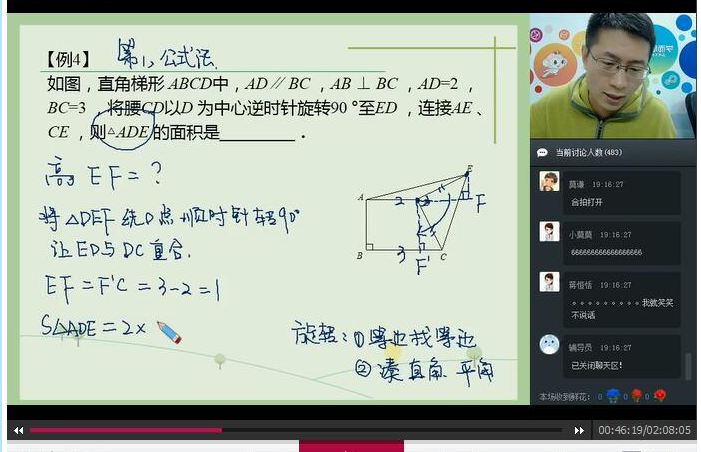 【例4】 第1, 公式法.
如图，直角梯形 ABCD中，AD∥BC，AB⊥BC，AD=2，
BC=3，将腰CD以D 为中心逆时针旋转90 °至ED，连接AE、
CE，则△ADE的面积是________．
高 EF=?
将 △DEF 绕D点顺时针转90°
让ED与DC重合.
EF=F'C=3-2=1
S△ADE=2×
旋转: ①等边找等边
②凑直角 平角
A
2
E
F
B
3
F'
C
当前讨论人数(483)
莫谦 19:16:27
合拍打开
小莫莫 19:16:27
蒋恒恬 19:16:27
。。。。。。。。。我就笑笑
不说话
辅导员 19:16:27
已关闭聊天区!
本场收到鲜花: 0 0 0
00:46:19/02:08:05